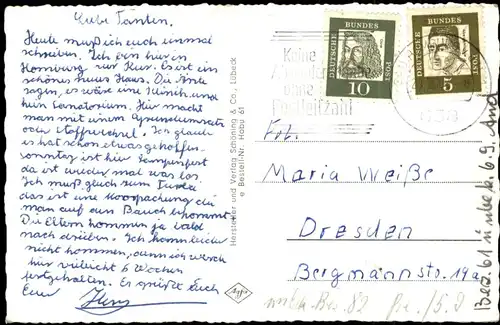 Liebe Tanten.
Heute muß ich euch einmal
schreiben. Ich bin hier in
Homburg zur Kur. Es ist ein
schönes neues Haus. Die Ärzte
sagen, es wäre eine Klinik und
kein Sanatorium. Hier macht
man mit einem Grundumsatz
oder Stoffwechsel. Ich glaube
es hat schon etwas geholfen.
sonntag ist hier
da ist wieder mal was los.
Ich muß gleich zum
das ist eine Moorpackung die
man auf den Bauch bekommt.
Die Eltern kommen ja bald
nach drüben. Ich kann leider
nicht kommen, denn ich werde
hier vielleicht 6 Wochen
festgehalten. Es grüßt Euch
Eure
Hersteller und Verlag Schöning & Co., Lübeck
Bestell-Nr. Hobg. 61
Agfa
DEUTSCHE
BUNDES
POST
10
DEUTSCHE
BUNDES
POST
5
Keine
ohne
Postleitzahl
Frl.
Maria Weiße
Dresden
Bergmannstr. 19a